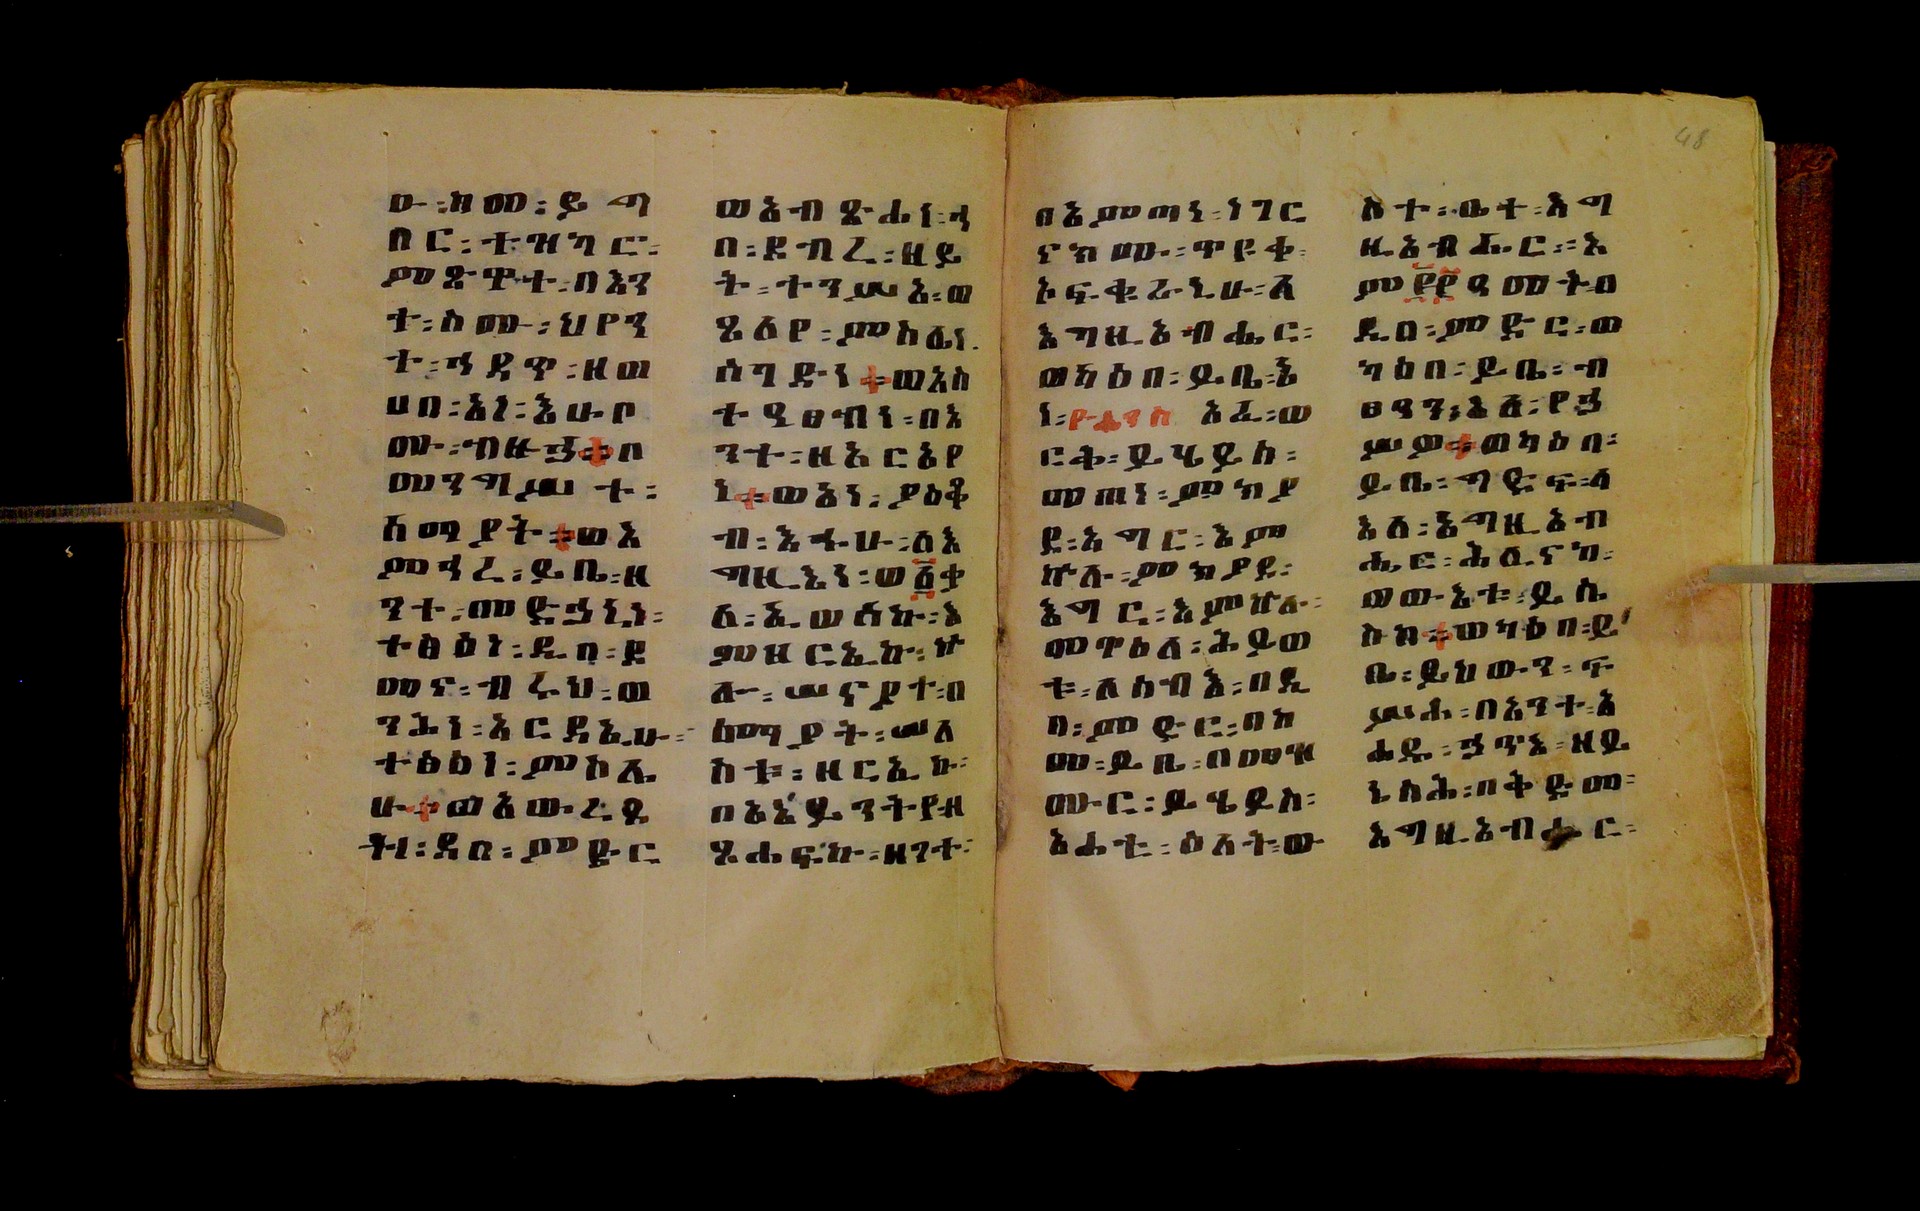 ው፡ከመ፡ይግ
በር፡ተዝካር፡
ምጽዋተ፡በእን
ተ፡ስሙ፡ህየን
ተ፡ኅዳጥ፡ዘወ
ሀበ፡እነ፡እሁቦ
ሙ፡ብዙኃ፡በ
መንግሥተ፡
ሰማያት፡ወእ
ምኅረ፡ይቤ፡ዘ
ንተ፡መድኃኒነ፡
ተፅዕነ፡ዲበ፡ደ
መና፡ብሩህ፡ወ
ንሕነ፡አርዳኢሁ፡
ተፅዕነ፡ምስሌ
ሁ፡ወአውረደ
ትነ፡ደበ፡ምድር
ወአብጽሐነ፡ኀ
በ፡ደብረ፡ዘይ
ት፡ተንሥአ፡ወ
ጸለየ፡ምስሌነ፡
ሰግድነ፡ወአስ
ተዓፀብነ፡በእ
ንተ፡ዘአርአየ
ነ፡ወእነ፡ያዕቆ
ብ፡እኁሁ፡ለእ
ግዚእነ፡ወ፩ቃ
ለ፡ኢወሰኩ፡እ
ምዘርኢኩ፡ኵ
ሎ፡ሠናያተ፡በ
ሰማያት፡ሠለ
ስቱ፡ዘርኢኩ፡
በአኔይንትየ፡ዘ
ጸሐፍኩ፡ዘንተ፡
በአምጣነ፡ነገር
ናክሙ፡ጥዩቀ፡
ኦፍቁራኒሁ፡ለ
እግዚአብሔር፡
ወካዕበ፡ይቤ፡እ
ነ፡ዮሐንስ አፈ፡ወ
ርቅ፡ይሄይስ፡
መጠነ፡ምክያ
ደ፡እግር፡እም
ኵሉ፡ምክያደ፡
እግር፡እምኵሉ፡
መዋዕለ፡ሕይወ
ቱ፡ለሰብእ፡በዲ
በ፡ምድር፡በከ
መ፡ይቤ፡በመዝ
ሙር፡ይሄይስ፡
አሐቲ፡ዕለት፡ው
ስተ፡ቤተ፡እግ
ዚአብሔር፡እ
ም፲፻ዓመት፡በ
ዲበ፡ምድር፡ወ
ካዕበ፡ይቤ፡ብ
ፁዓን፡እለ፡የኃ
ሥሥ፡ወካዕበ፡
ይቤ፡ግድፍ፡ላ
እለ፡እግዚአብ
ሔር፡ሕሊናከ፡
ወውእቱ፡ይሴ
ስከ፡ወካዕበ፡ይ
ቤ፡ይህውን፡ፍ
ሥሐ፡በእንተ፡አ
ሐዱ፡ኃጥእ፡ዘይ
ኔስሕ፡በቅድመ፡
እግዚአብሔር፡
48